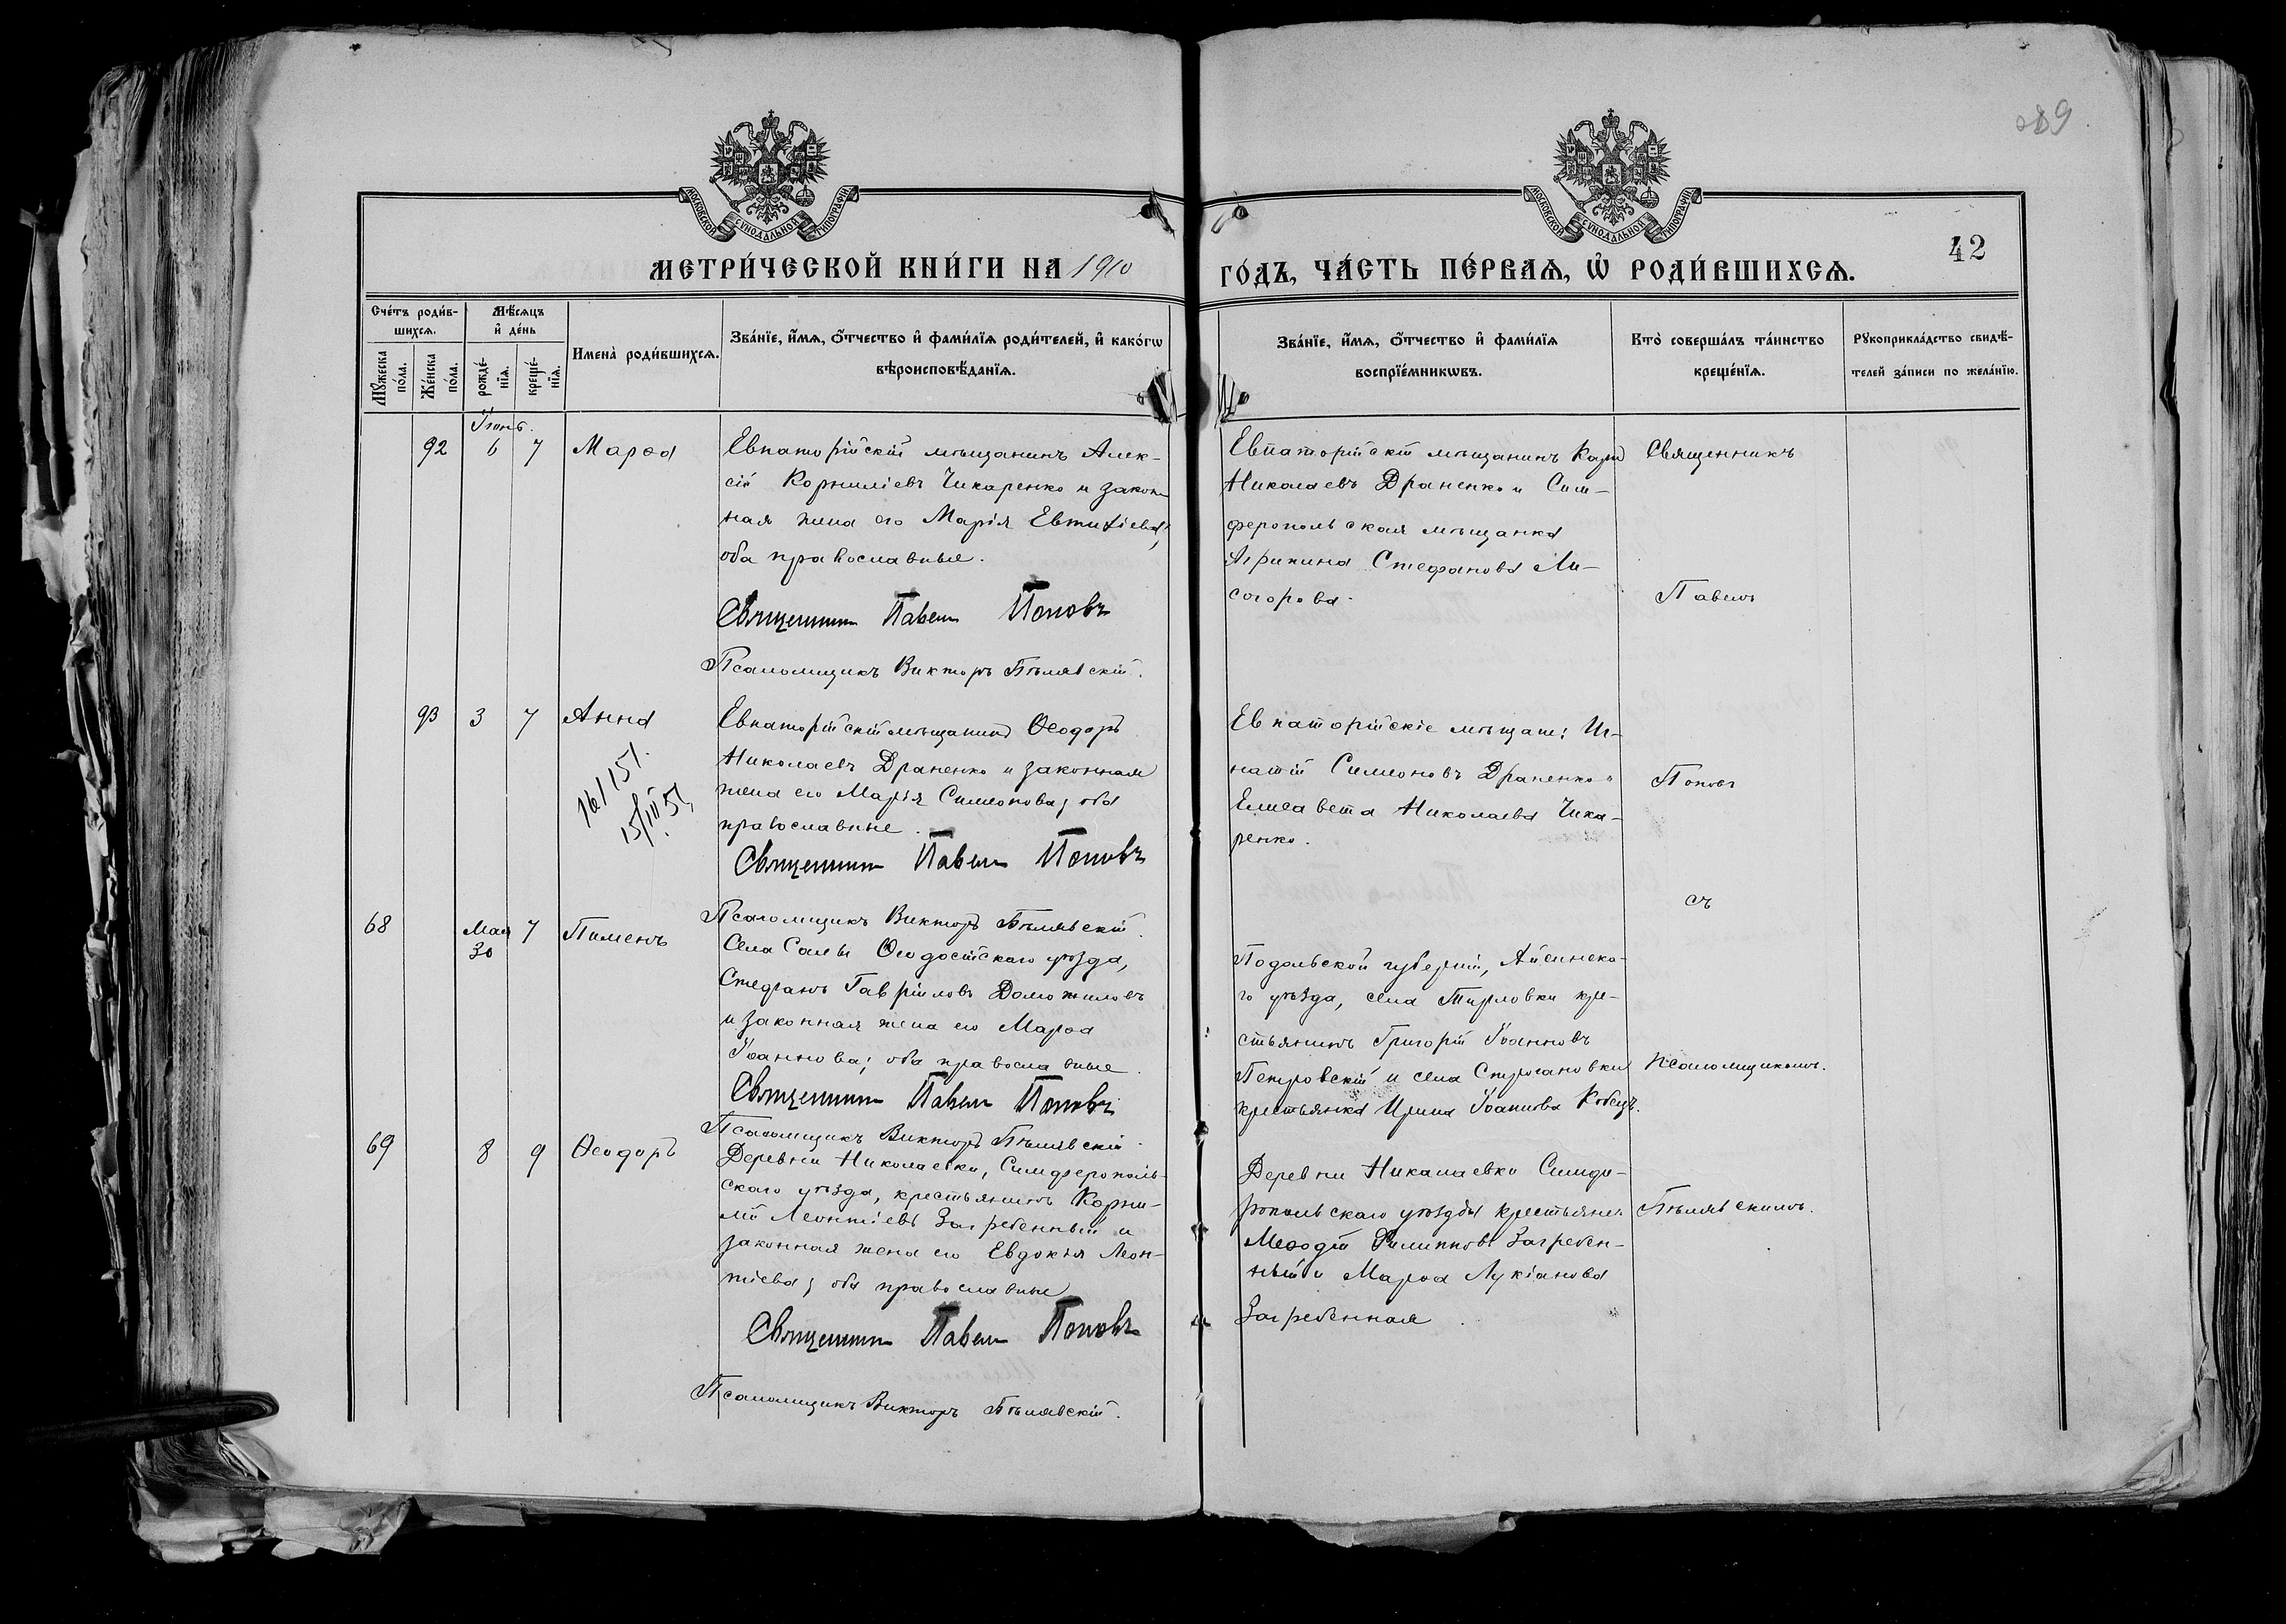 089
МОСКОВСКОЙ СѴНОДАЛЬНОЙ ТИПОГРАФІИ
МОСКОВСКОЙ СѴНОДАЛЬНОЙ ТИПОГРАФІИ
42
МЕТРИ́ЧЕСКОЙ КНИ́ГИ НА 1910
ГО́ДЪ, ЧА́СТЬ ПЕ́РВАѦ, Ѡ҆ РОДИ́ВШИХСѦ.
Сче́тъ роди́в-
шихсѧ.
Мꙋжеска по́ла.
Же́нска по́ла.
Мѣ́сѧцъ
и҆ де́нь
рожде́-
нїѧ.
креще́-
нїѧ.
Имена̀ роди́вшихсѧ.
Зва́нїе, и҆́мѧ, ѻ҆́тчество и҆ фами́лїѧ роди́телей, и҆ како́гѡ
вѣроисповѣ́данїѧ.
Зва́нїе, и҆́мѧ, ѻ҆́тчество и҆ фами́лїѧ
воспрїе́мникѡвъ.
Кто̀ соверша́лъ та́инство
креще́нїѧ.
Рꙋкоприкла́дство свидѣ́-
телей за́писи по жела́нїю.
Іюнь.
92 6 7 Марѳа
Евпаторійскій мѣщанинъ Алек-
сій Корниліевъ Чикаренко и закон-
ная жена его Марія Евтихіева,
оба православные.
Священникъ Павелъ Поповъ
Псаломщикъ Викторъ Бѣлявскій.
Евпаторійскій мѣщанинъ Карпъ
Николаевъ Драненко и Сим-
феропольская мѣщанка
Агрипина Стефанова Ли-
согорова.
Священникъ
Павелъ
93 3 7 Анна
161 151.
15/III 51.
Евпаторійскій мѣщанинъ Ѳеодоръ
Николаевъ Драненко и законная
жена его Марія Симеонова, оба
православные.
Священникъ Павелъ Поповъ
Псаломщикъ Викторъ Бѣлявскій.
Евпаторійскіе мѣщане: Иг-
натій Симеоновъ Драненко и
Елисавета Николаева Чика-
ренко.
Поповъ
съ
68 Мая 30 7 Пименъ
Села Салы Ѳеодосійскаго уѣзда,
Стефанъ Гавріиловъ Доможиловъ
и законная жена его Марѳа
Іоаннова; оба православные.
Священникъ Павелъ Поповъ
Псаломщикъ Викторъ Бѣлявскій.
Подольской губерніи,
го уѣзда, села Тырловки кре-
стьянинъ Григорій Іоанновъ
Петровскій и села Строгановки
крестьянка Ирина Іоаннова Кобецъ.
псаломщикомъ.
69 8 9 Ѳеодоръ
Деревни Николаевки, Симферополь-
скаго уѣзда, крестьянинъ Корни-
лій Леонтіевъ Загребенный и
законная жена его Евдокія Леон-
тіева; оба православные
Священникъ Павелъ Поповъ
Псаломщикъ Викторъ Бѣлявскій.
Деревни Никалаевки Симфе-
ропольскаго уѣзда крестьяне
Меѳодій Филипповъ Загребен-
ный и Марѳа Лукіанова
Загребенная.
Бѣлявскимъ.